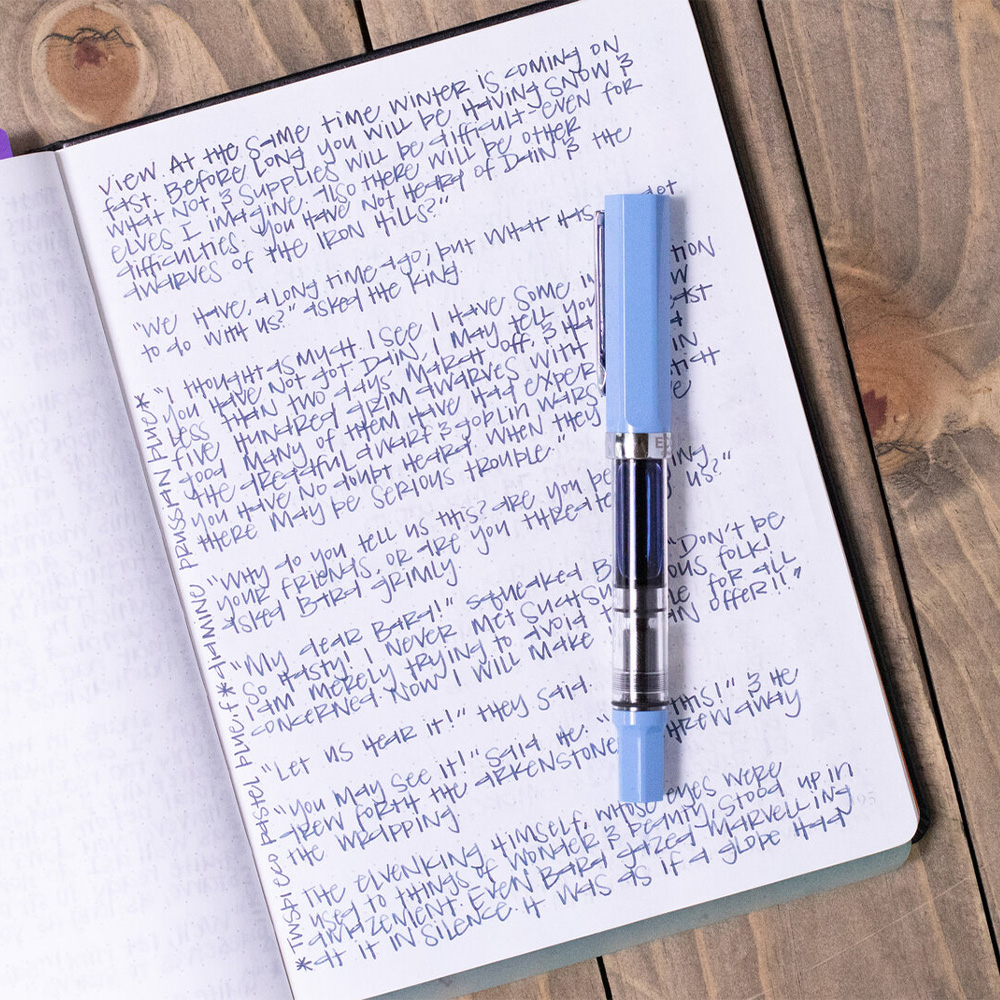 VIEW. At the same time winter is coming on
fast. Before long you will be having snow &
what not, & supplies will be difficult - even for
elves I imagine. Also there will be other
difficulties. You have not heard of Dain & the
dwarves of the Iron Hills?"
"We have, a long time ago; but what has got
to do with us?" asked the king
"I thought as much. I see I have some in tion
you have not got. Dain, I may tell you w
less than two days march off, & ha ast
five hundred grim dwarves with a
good many of them have had exper in
the dreadful dwarf & goblin wars
you have no doubt heard. When they
there may be serious trouble."
"Why do you tell us this? Are you be ing
your friends, or are you threate us?"
asked Bard grimly
"My dear Bard!" squeaked B "Don't be
so hasty! I never met such su ous folk!
I am merely trying to avoid t le for all
concerned. Now I will make an offer!!"
"Let us hear it!" they said.
"You may see it!" said he. " this!" & he
drew forth the arkenstone threw away
the wrapping
The elvenking himself, whose eyes were
used to things of wonder & beauty, stood up in
amazement. Even Bard gazed marvelling
at it in silence. It was as if a globe had
*TWSBI eco pastel bluef*diamine prussian bluef*
95